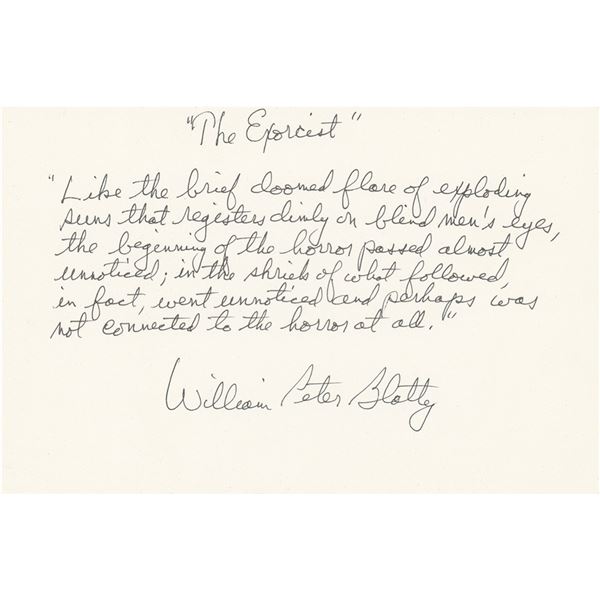 "The Exorcist"
"Like the brief doomed flare of exploding
suns that registers dimly on blind men's eyes,
the beginning of the horror passed almost
unnoticed; in the shriek of what followed,
in fact, went unnoticed and perhaps was
not connected to the horror at all."
William Peter Blatty